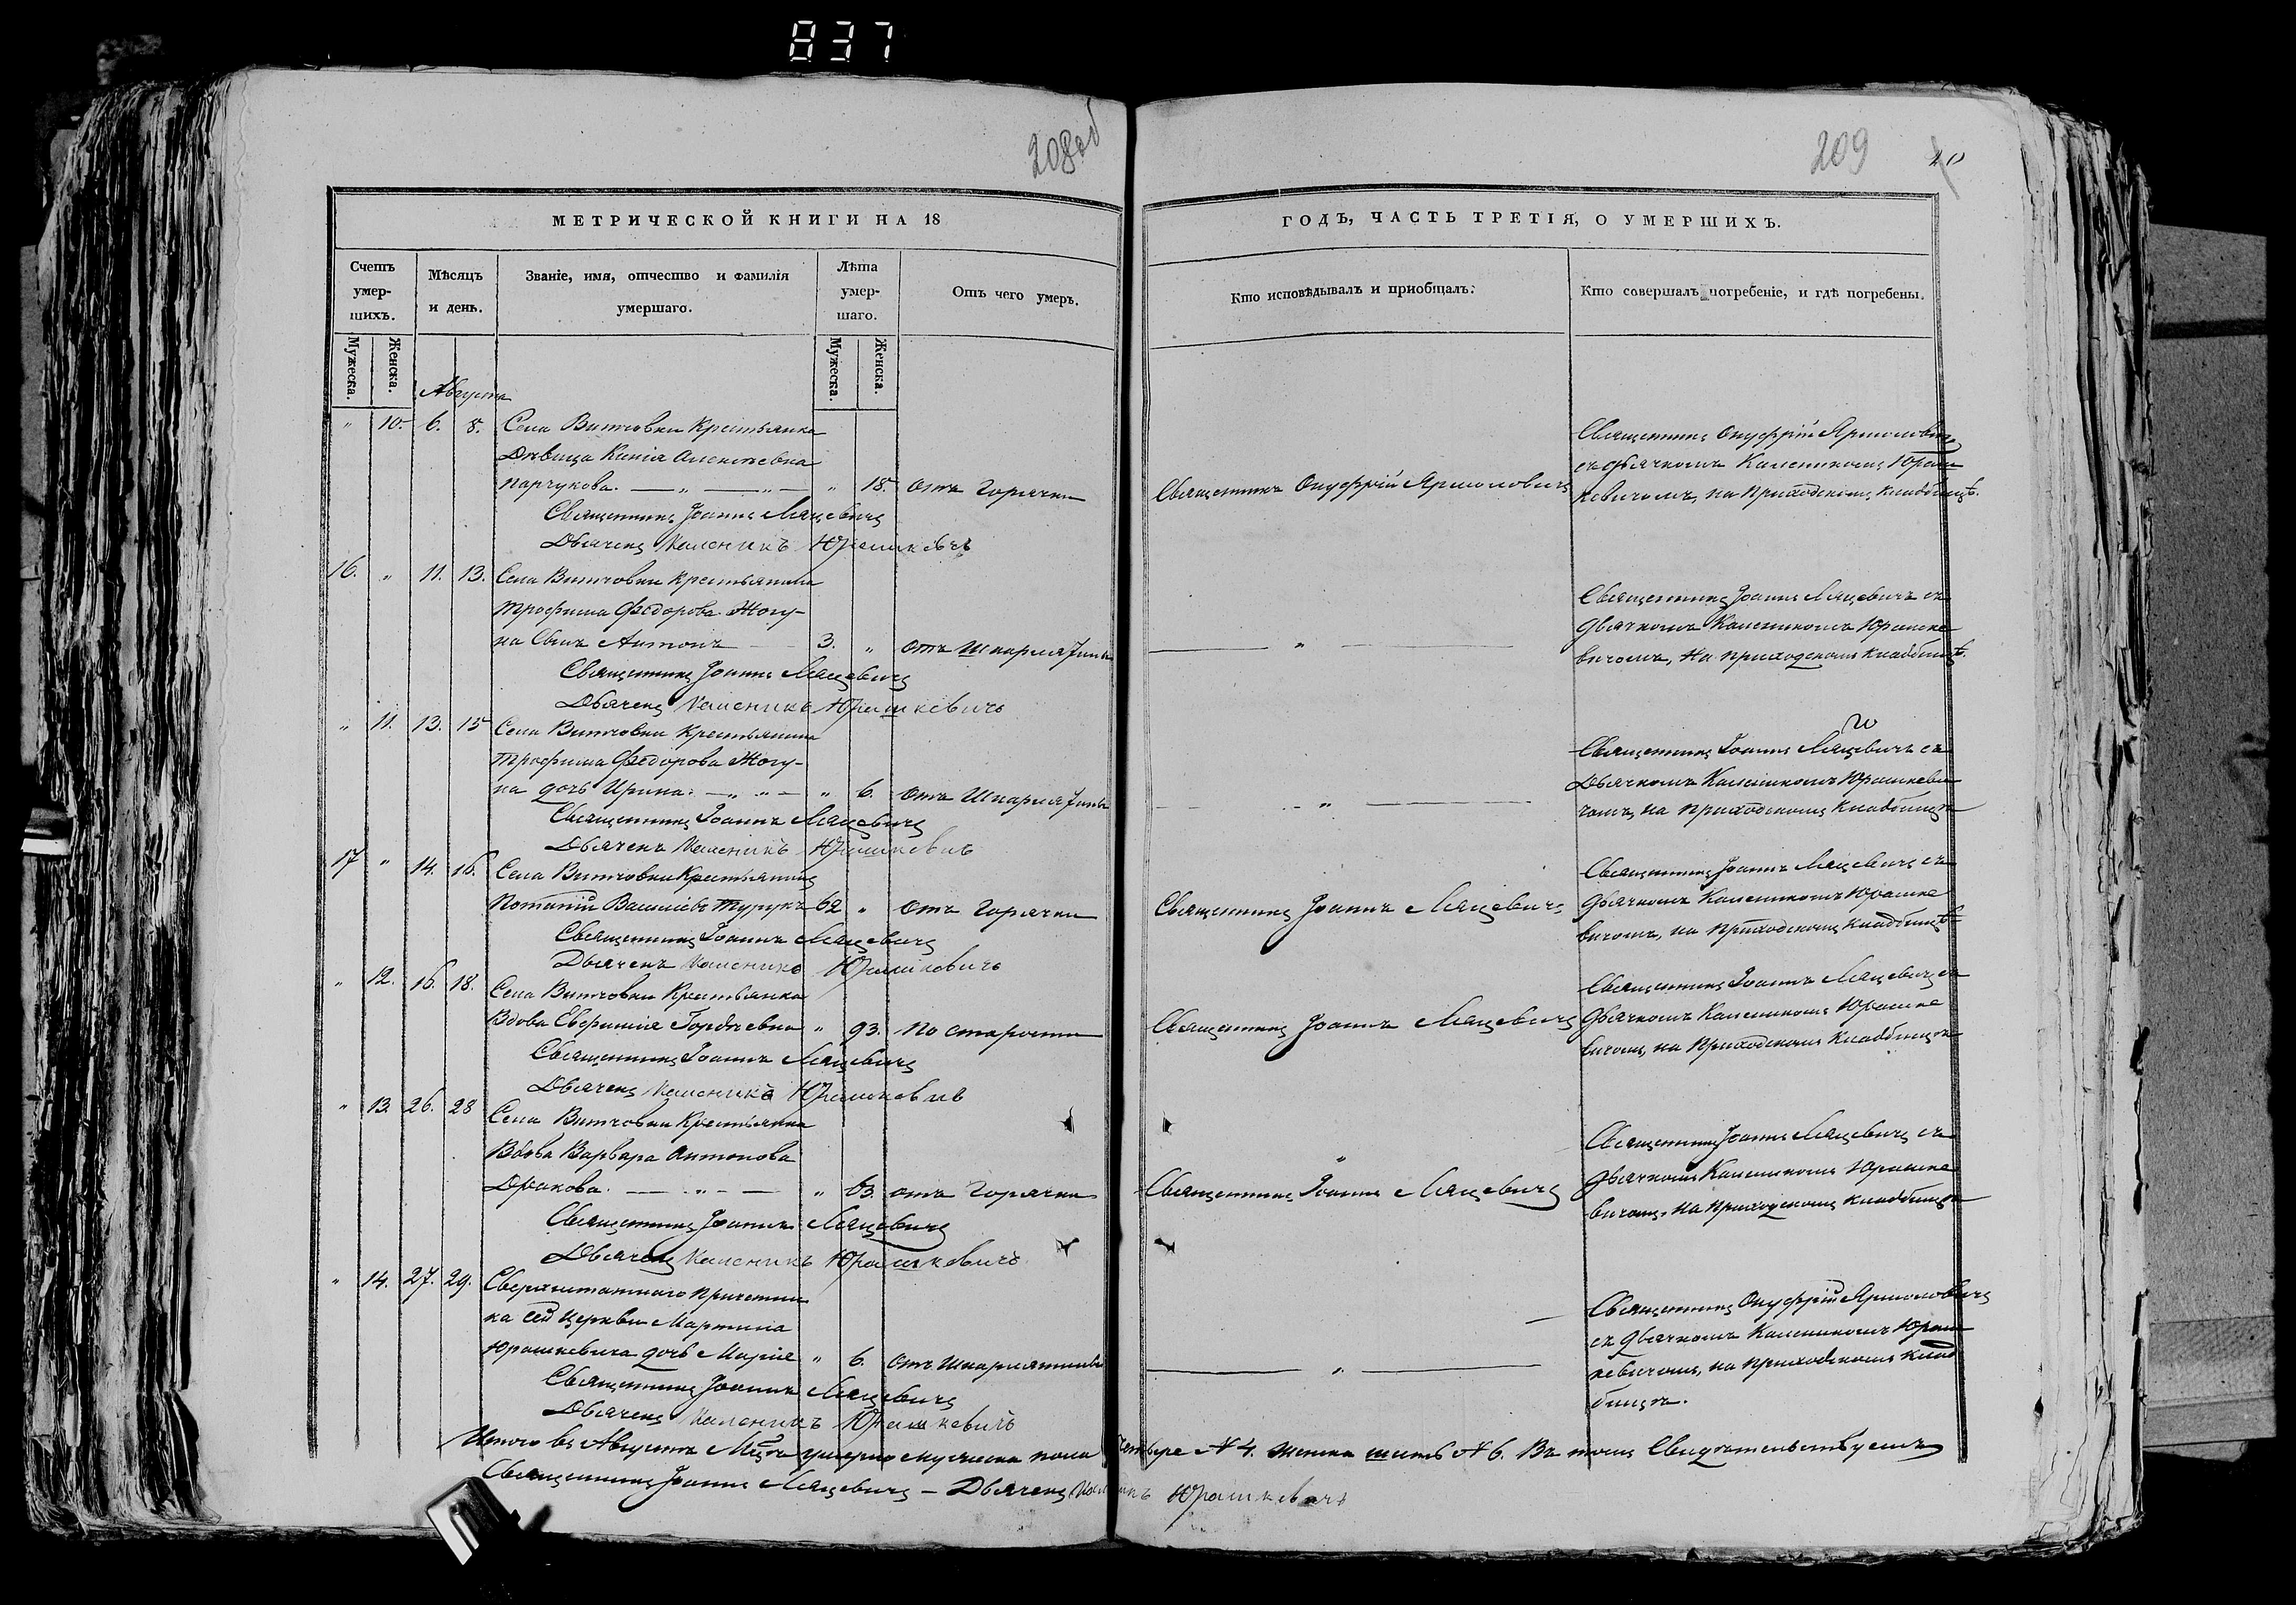 837
208об
209
МЕТРИЧЕСКОЙ КНИГИ НА 18
ГОДЪ, ЧАСТЬ ТРЕТІЯ, О УМЕРШИХЪ.
Счетъ умер-шихъ.
Мѣсяцъ и день.
Званіе, имя, отчество и фамилія умершаго.
Лѣта умер-шаго.
Отъ чего умеръ.
Кто исповѣдывалъ и пріобщалъ.
Кто совершалъ погребеніе, и гдѣ погребены.
Мужеска.
Женска.
Мужеска.
Женска.
Августа
" 10. 6. 8. Села Витчовки Крестьянка
Дѣвица Ксенія Алексѣевна
Парчукова. " 18. Отъ Горячки
Священникъ Іоаннъ Мацевичъ
Дьячекъ Каленикъ Юрашкевичъ
Священникъ Онуфрій Ярмоловичъ
Священникъ Онуфрій Ярмоловичъ
съ дьячкомъ Каленикомъ Юраш
кевичомъ, на приходскомъ кладбищѣ.
16. " 11. 13. Села Витчовки крестьянина
Трофима Ѳедорова Жогу-
на Сынъ Антонъ 3. " отъ Шкарлятины
Священникъ Іоаннъ Мацевичъ
Дьячекъ Каленикъ Юрашкевичъ
"
Священникъ Іоаннъ Мацевичъ съ
дьячкомъ Каленикомъ Юрашке
вичомъ, на приходскомъ кладбищѣ.
" 11. 13. 15 Села Витчовки Крестьянина
Трофима Ѳедорова Жогу-
на дочь Ирина. " 6. Отъ Шкарлятины
Священникъ Іоаннъ Мацевичъ
Дьячекъ Каленикъ Юрашкевичъ
"
Священникъ Іоаннъ Мацевичъ съ
Дьячкомъ Каленикомъ Юрашкеви
чомъ, на приходскомъ кладбищѣ
17 " 14. 16. Села Витчовки Крестьянинъ
Потапій Василіевъ Турукъ 62 " Отъ Горячки
Священникъ Іоаннъ Мацевичъ
Дьячекъ Каленикъ Юрашкевичъ
Священникъ Іоаннъ Мацевичъ
Священникъ Іоаннъ Мацевичъ съ
дьячкомъ Каленикомъ Юрашке
вичомъ, на приходскомъ кладбищѣ
" 12. 16. 18. Села Витчовки Крестьянка
Вдова Евфимія Гордѣевна " 93. По старости
Священникъ Іоаннъ Мацевичъ
Дьячекъ Каленикъ Юрашкевичъ
Священникъ Іоаннъ Мацевичъ
Священникъ Іоаннъ Мацевичъ съ
дьячкомъ Каленикомъ Юрашке
вичомъ, на приходскомъ кладбищѣ
" 13. 26. 28 Села Витчовки Крестьянка
Вдова Варвара Антонова
" 63. отъ Горячки
Священникъ Іоаннъ Мацевичъ
Дьячекъ Каленикъ Юрашкевичъ
Священникъ Іоаннъ Мацевичъ
Священникъ Іоаннъ Мацевичъ съ
дьячкомъ Каленикомъ Юрашке
вичомъ, на приходскомъ кладбищѣ
" 14. 27. 29. Сверхштатнаго Причетни
ка сей Церкви Мартина
Юрашкевича дочь Марія " 6. Отъ Шкарлятины
Священникъ Іоаннъ Мацевичъ
Дьячекъ Каленикъ Юрашкевичъ
"
Священникъ Онуфрій Ярмоловичъ
съ дьячкомъ Каленикомъ Юраш
кевичомъ, на приходскомъ клад
бищѣ.
Итого въ Августѣ М-цѣ умерло мужеска пола четыре № 4. женска шесть № 6. Въ томъ Свидѣтельствуемъ
Священникъ Іоаннъ Мацевичъ – Дьячекъ Каленикъ Юрашкевичъ